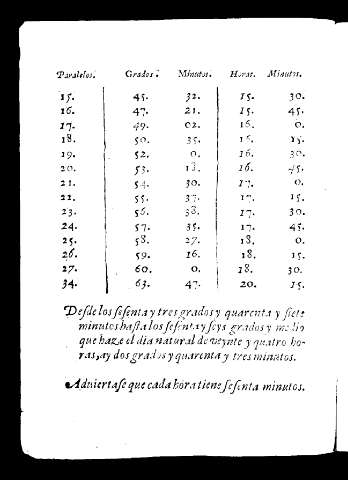 Paralelos. Grados. Minutos. Horas. Minutos.
15. 45. 32. 15. 30.
16. 47. 21. 15. 45.
17. 49. 02. 16. 0.
18. 50. 35. 16. 15.
19. 52. 0. 16. 30.
20. 53. 16. 45.
21. 54. 30. 17. 0.
22. 55. 37. 17. 15.
23. 56. 38. 17. 30.
24. 57. 35. 17. 45.
25. 58. 27. 18. 0.
26. 59. 16. 18. 15.
27. 60. 0. 18. 30.
34. 63. 47. 20. 15.
Desde los sesenta y tres grados y quarenta y siete
minutos hasta los sesenta y seys grados y medio
que haze el dia natural de veynte y quatro ho-
ras, ay dos grados y quarenta y tres minutos.
Adviertase que cada hora tiene sesenta minutos.